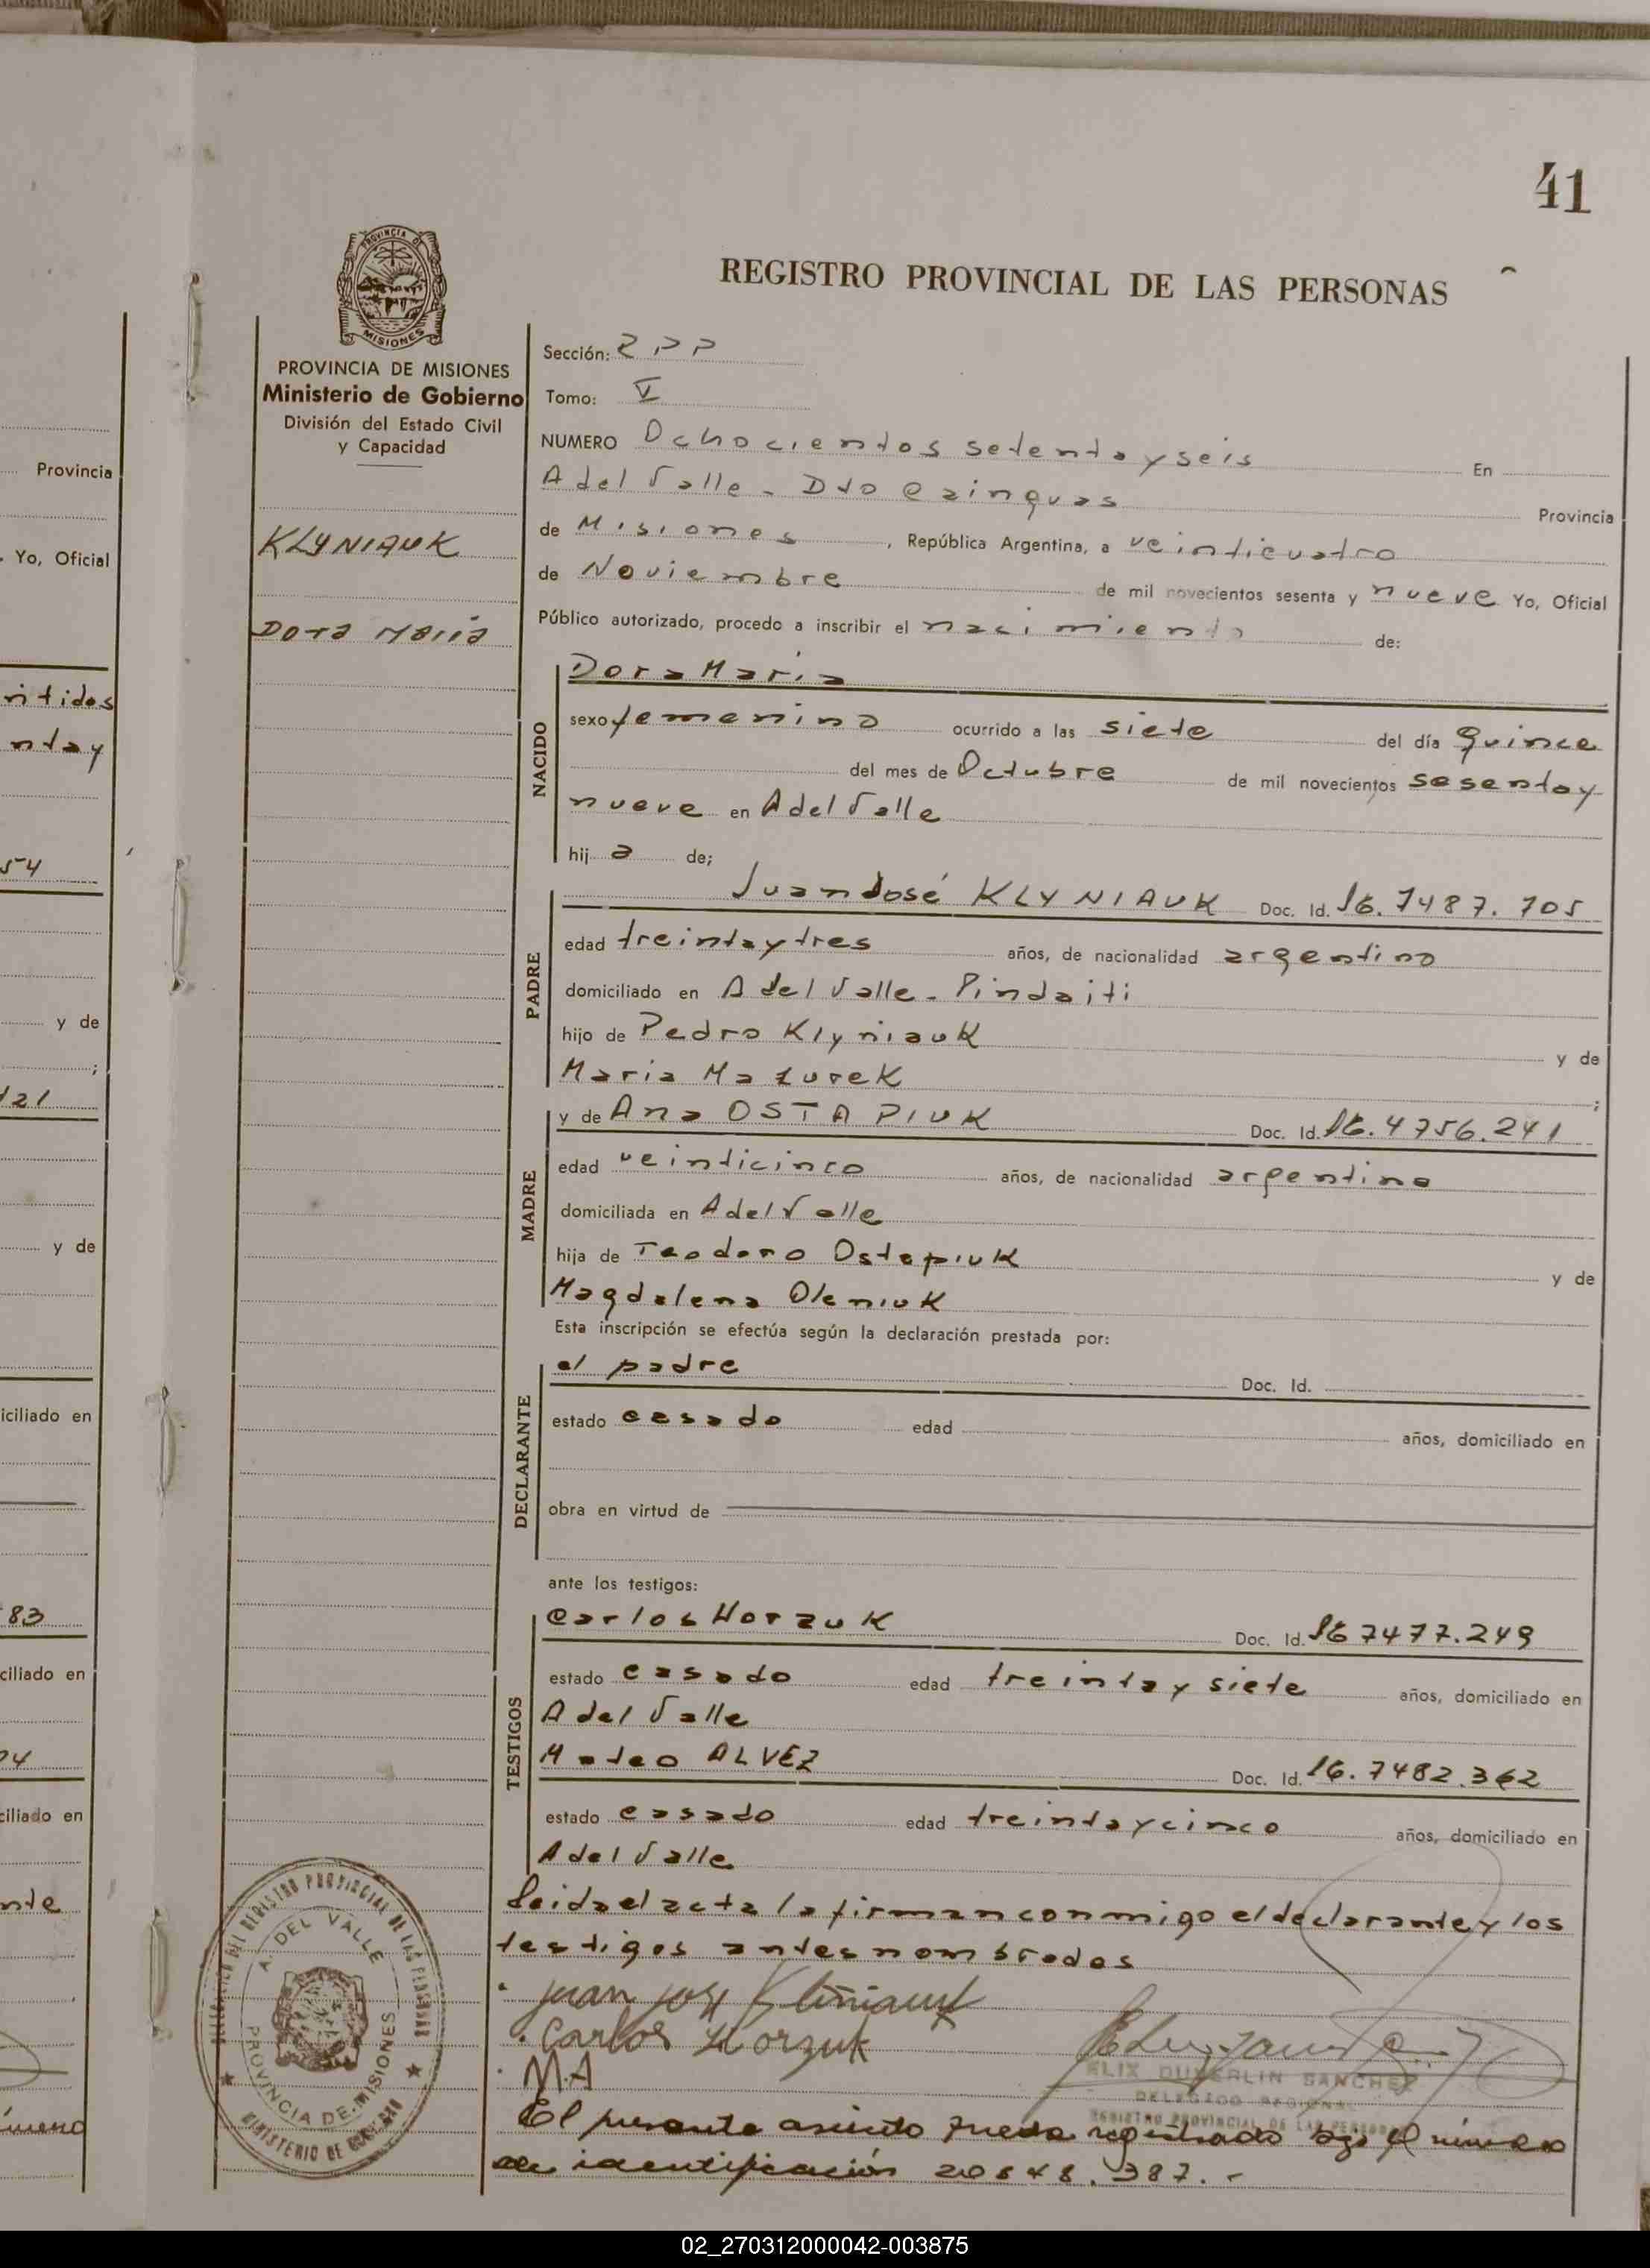 41
REGISTRO PROVINCIAL DE LAS PERSONAS
PROVINCIA DE MISIONES
Ministerio de Gobierno
División del Estado Civil
y Capacidad
KLYNIAUK
Dora María
Sección:
Tomo: V
NUMERO Ochocientos setenta y seis En
A del Valle - Dto Cainguas Provincia
de Misiones, República Argentina, a veinticuatro
de Noviembre de mil novecientos sesenta y nueve Yo, Oficial
Público autorizado, procedo a inscribir el nacimiento de:
NACIDO
Dora María
sexo femenino ocurrido a las siete del día quince
del mes de Octubre de mil novecientos sesenta y
nueve en A del Valle
hija de;
PADRE
Juan José KLYNIAUK Doc. Id. 7487.705
edad treinta y tres años, de nacionalidad argentino
domiciliado en A del Valle - Pindaiti
hijo de Pedro Klyniauk y de
Maria Mazurek ;
MADRE
y de Ana OSTAPIUK Doc. Id. 4756.241
edad veinticinco años, de nacionalidad argentina
domiciliada en A del Valle
hija de Teodoro Ostapiuk y de
Magdalena Oleniuk
Esta inscripción se efectúa según la declaración prestada por:
DECLARANTE
el padre Doc. Id.
estado casado edad años, domiciliado en
obra en virtud de
ante los testigos:
TESTIGOS
Carlos Horzuk Doc. Id. 7477.249
estado casado edad treinta y siete años, domiciliado en
A del Valle
Mateo ALVEZ Doc. Id. 7482.362
estado casado edad treinta y cinco años, domiciliado en
A del Valle
Leida el acta la firman conmigo el declarante y los
testigos antes nombrados
Juan José Kliniauk
Carlos Horzuk
MA
SANCHEZ
DELEGADO REGIONAL
REGISTRO PROVINCIAL DE LAS PERSONAS
El presente asiento queda registrado bajo el número
de identificación 20848.387.-
A. DEL VALLE
PROVINCIA DE MISIONES
MINISTERIO DE GOBIERNO
Provincia
Yo, Oficial
y de
y de
iciliado en
83
ciliado en
ciliado en
02_270312000042-003875